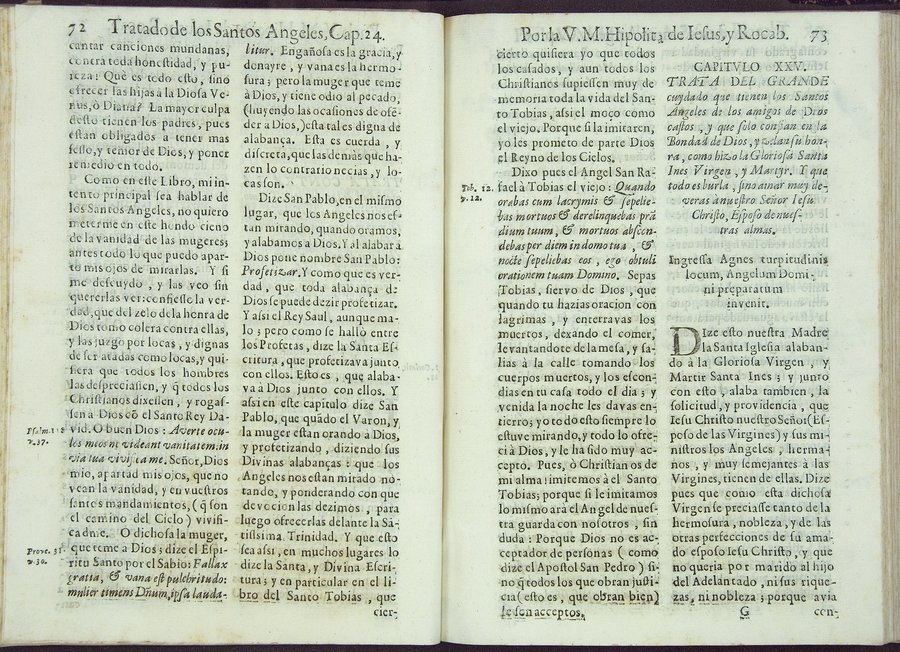 72 Tratado de los Santos Angeles, Cap. 24.
cantar canciones mundanas,
contra toda honestidad, y pu-
reza! Que es todo esto, sino
ofrecer las hijas à la Diosa Ve-
nus, ò Diana? La mayor culpa
desto tienen los padres, pues
están obligados à tener mas
sesso, y temor de Dios, y poner
remedio en todo.
Como en este Libro, mi in-
tento principal sea hablar de
los Santos Angeles, no quiero
meterme en este hondo cieno
de la vanidad de las mugeres;
antes todo lo que puedo apar-
to mis ojos de mirarlas. Y si
me descuydo, y las veo sin
quererlas ver: confiesso la ver-
dad, que del zelo de la honra de
Dios tomo colera contra ellas,
y las juzgo por locas, y dignas
de ser atadas como locas, y qui-
siera que todos los hombres
las despreciassen, y q̃ todos los
Christianos dixessen, y rogas-
sen à Dios cõ el Santo Rey Da-
vid. O buen Dios: Averte ocu-
los meos ni videant vanitatem: in
via tua vivifica me. Señor, Dios
mio, apartad mis ojos, que no
vean la vanidad, y en vuestros
santos mandamientos, (q̃ son
el camino del Cielo) vivifi-
cadme. O dichosa la muger,
que teme à Dios; dize el Espi-
ritu Santo por el Sabio: Fallax
gratia, & vana est pulchritudo:
mulier timens Dñum, ipsa lauda-
v.37.
Prove. 31.
v.30.
litur. Engañosa es la gracia, y
denayre, y vana es la hermo-
sura; pero la muger que teme
à Dios, y tiene odio al pecado,
(huyendo las ocasiones de ofẽ-
der à Dios,) esta tal es digna de
alabança. Esta es cuerda, y
discreta, que las demàs que ha-
zen lo contrario necias, y lo-
cas son.
Dize San Pablo, en el mismo
lugar, que los Angeles nos es-
tan mirando, quando oramos,
y alabamos à Dios. Y al alabar à
Dios pone nombre San Pablo:
Profetizar. Y como que es ver-
dad, que toda alabança de
Dios se puede dezir profetizar.
Y assi el Rey Saul, aunque ma-
lo; pero como se hallò entre
los Profetas, dize la Santa Es-
critura, que profetizava junto
con ellos. Esto es, que alaba-
va à Dios junto con ellos. Y
assi en este capitulo dize San
Pablo, que quãdo el Varon, y
la muger estan orando à Dios,
y profetizando, diziendo sus
Divinas alabanças: que los
Angeles nos estan mirado no-
tando, y ponderando con que
devocion las dezimos, para
luego ofrecerlas delante la Sã-
tissima Trinidad. Y que esto
sea assi, en muchos lugares lo
dize la Santa, y Divina Escri-
tura; y en particular en el li-
bro del Santo Tobias, que
cier-
Por la V. M. Hipolita de Iesus, y Rocab. 73
cierto quisiera yo que todos
los casados, y aun todos los
Christianos supiessen muy de
memoria toda la vida del San-
to Tobias, assi el moço como
el viejo. Porque si la imitaren,
yo les prometo de parte Dios
el Reyno de los Cielos.
Dixo pues el Angel San Ra-
faèl à Tobias el viejo: Quando
orabas cum lacrymis & sepelie-
bas mortuos & derelinquebas prã
dium tuum, & mortuos abscon-
debas per diem in domo tua, &
nocte sepeliebas eos, ego obtuli
orationem tuam Domino. Sepas
Tobias, siervo de Dios, que
quando tu hazias oracion con
lagrimas, y enterravas los
muertos, dexando el comer,
levantandote de la mesa, y sa-
lias à la calle tomando los
cuerpos muertos, y los escon-
dias en tu casa todo el dia; y
venida la noche les davas en-
tierro; yo todo esto siempre lo
estuve mirando, y todo lo ofre-
ci à Dios, y le ha sido muy ac-
cepto. Pues, ò Christianos de
mi alma imitemos à el Santo
Tobias; porque si le imitamos
lo mismo arà el Angel de nues-
tra guarda con nosotros, sin
duda: Porque Dios no es ac-
ceptador de personas ( como
dize el Apostol San Pedro ) si-
no q̃ todos los que obran justi-
cia ( esto es, que obran bien)
le son acceptos.
Tob. 12.
v.12.
CAPITVLO XXV.
TRATA DEL GRANDE
cuydado que tienen los Santos
Angeles de los amigos de Dios
castos, y que solo confian en la
Bondad de Dios, y zelan su hon-
ra, como hizo la Gloriosa Santa
Ines Virgen, y Martyr. Y que
todo es burla, sino amar muy de-
veras a nuestro Señor Iesu
Christo, Esposo de nues-
tras almas.
Ingressa Agnes turpitudinis
locum, Angelum Domi-
ni præparatum
invenit.
DIze esto nuestra Madre
la Santa Iglesia alaban-
do à la Gloriosa Virgen, y
Martir Santa Ines; y junto
con esto, alaba tambien, la
solicitud, y providencia, que
Iesu Christo nuestro Señor (Es-
poso de las Virgines) y sus mi-
nistros los Angeles, herma-
nos, y muy semejantes à las
Virgines, tienen de ellas. Dize
pues que como esta dichosa
Virgen se preciasse tanto de la
hermosura, nobleza, y de las
otras perfecciones de su ama-
do esposo Iesu Christo, y que
no queria por marido al hijo
del Adelantado, ni sus rique-
zas, ni nobleza; porque avia
G
con-